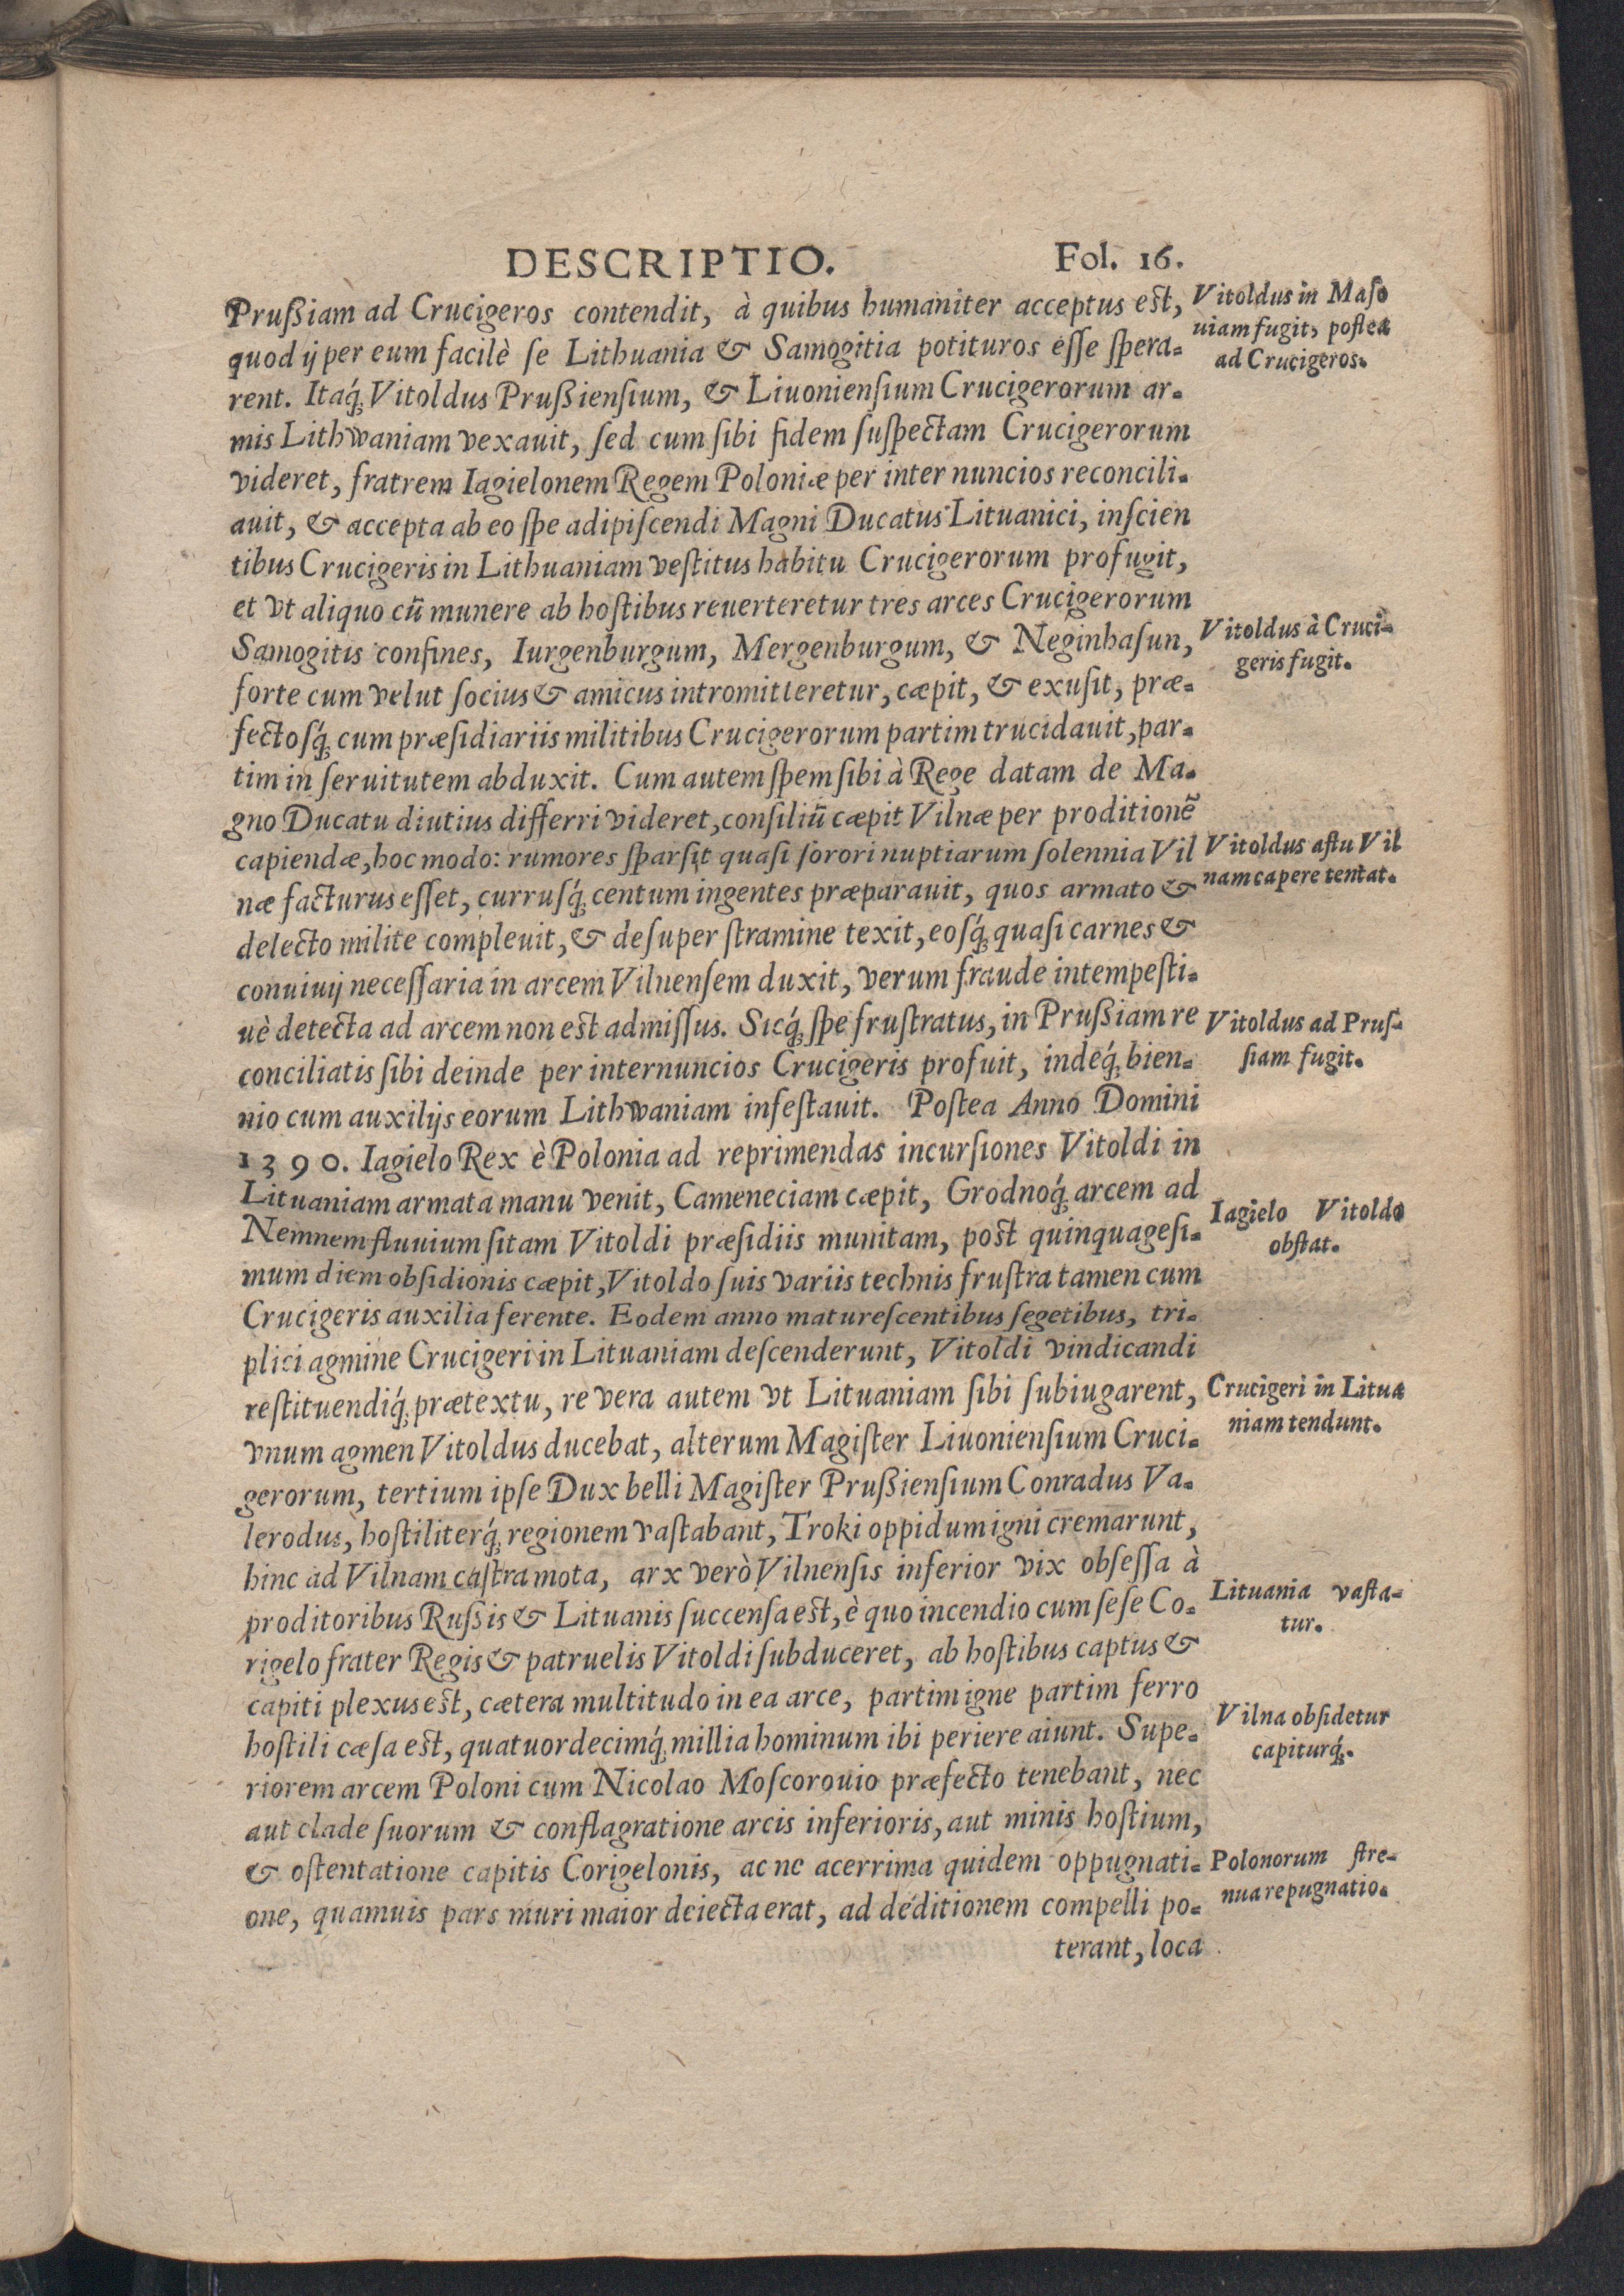 DESCRIPTIO. Fol. 16.
Prußiam ad Crucigeros contendit, à quibus humaniter acceptus est,
quod ij per eum facilè se Lithuania & Samogitia potituros esse spera-
rent. Itaq́; Vitoldus Prußiensium, & Liuoniensium Crucigerorum ar-
mis Lithwaniam vexauit, sed cum sibi fidem suspectam Crucigerorum
videret, fratrem Iagielonem Regem Poloniæ per inter nuncios reconcili-
auit, & accepta ab eo spe adipiscendi Magni Ducatus Lituanici, inscien
tibus Crucigeris in Lithuaniam vestitus habitu Crucigerorum profugit,
et vt aliquo cū munere ab hostibus reuerteretur tres arces Crucigerorum
Samogitis confines, Iurgenburgum, Mergenburgum, & Neginhasun,
forte cum velut socius & amicus intromitteretur, cæpit, & exusit, præ-
fectosq́; cum præsidiariis militibus Crucigerorum partim trucidauit, par-
tim in seruitutem abduxit. Cum autem spem sibi à Rege datam de Ma-
gno Ducatu diutius differri videret, consiliū cæpit Vilnæ per proditionē
capiendæ, hoc modo: rumores sparsit quasi sorori nuptiarum solennia Vil
næ facturus esset, currusq́; centum ingentes præparauit, quos armato &
delecto milite compleuit, & desuper stramine texit, eosq́; quasi carnes &
conuiuij necessaria in arcem Vilnensem duxit, verum fraude intempesti-
uè detecta ad arcem non est admissus. Sicq́; spe frustratus, in Prußiam re
conciliatis sibi deinde per internuncios Crucigeris profuit, indeq́; bien-
nio cum auxilijs eorum Lithwaniam infestauit. Postea Anno Domini
1390. Iagielo Rex è Polonia ad reprimendas incursiones Vitoldi in
Lituaniam armata manu venit, Cameneciam cæpit, Grodnoq́; arcem ad
Nemnem fluuium sitam Vitoldi præsidiis munitam, post quinquagesi-
mum diem obsidionis cæpit, Vitoldo suis variis technis frustra tamen cum
Crucigeris auxilia ferente. Eodem anno maturescentibus segetibus, tri-
plici agmine Crucigeri in Lituaniam descenderunt, Vitoldi vindicandi
restituendiq́; prætextu, re vera autem vt Lituaniam sibi subiugarent,
vnum agmen Vitoldus ducebat, alterum Magister Liuoniensium Cruci-
gerorum, tertium ipse Dux belli Magister Prußiensium Conradus Va-
lerodus, hostiliterq́; regionem vastabant, Troki oppidum igni cremarunt,
hinc ad Vilnam castra mota, arx verò Vilnensis inferior vix obsessa à
proditoribus Rußis & Lituanis succensa est, è quo incendio cum sese Co-
rigelo frater Regis & patruelis Vitoldi subduceret, ab hostibus captus &
capiti plexus est, cætera multitudo in ea arce, partim igne partim ferro
hostili cæsa est, quatuordecimq́; millia hominum ibi periere aiunt. Supe-
riorem arcem Poloni cum Nicolao Moscorouio præfecto tenebant, nec
aut clade suorum & conflagratione arcis inferioris, aut minis hostium,
& ostentatione capitis Corigelonis, ac ne acerrima quidem oppugnati-
one, quamuis pars muri maior deiecta erat, ad déditionem compelli po-
terant, loca
Vitoldus in Maso
uiam fugit, postea
ad Crucigeros.
Vitoldus à Cruci-
geris fugit.
Vitoldus astu Vil
nam capere tentat.
Vitoldus ad Prus-
siam fugit.
Iagielo Vitoldo
obstat.
Crucigeri in Litua
niam tendunt.
Lituania vasta-
tur.
Vilna obsidetur
capiturq́;.
Polonorum stre-
nua repugnatio.